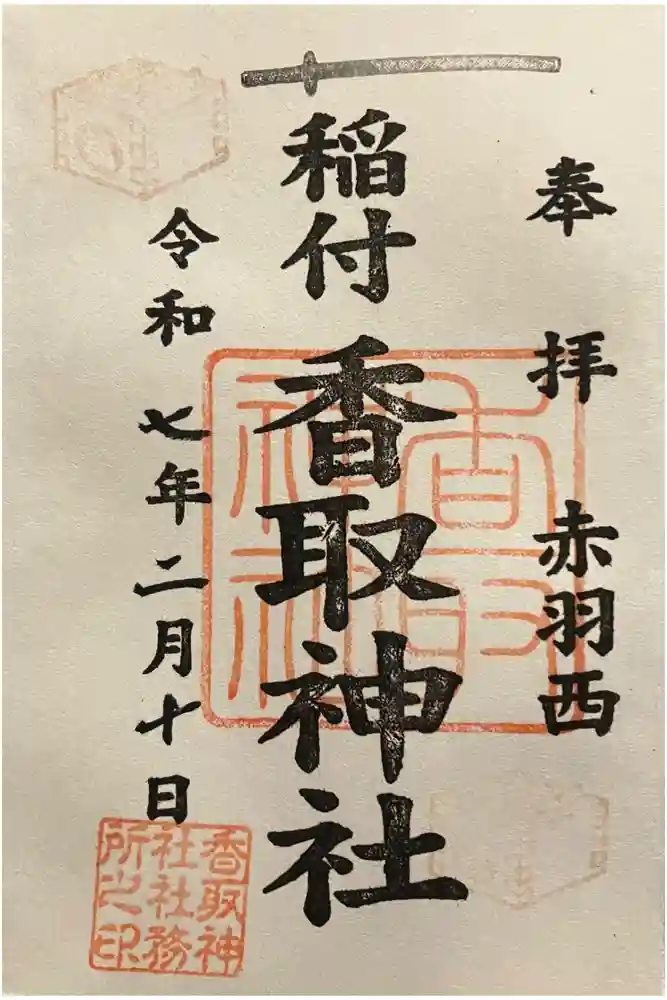 奉拝 赤羽西
稲付 香取神社
令和七年二月十日
香取神
社社務
所之印